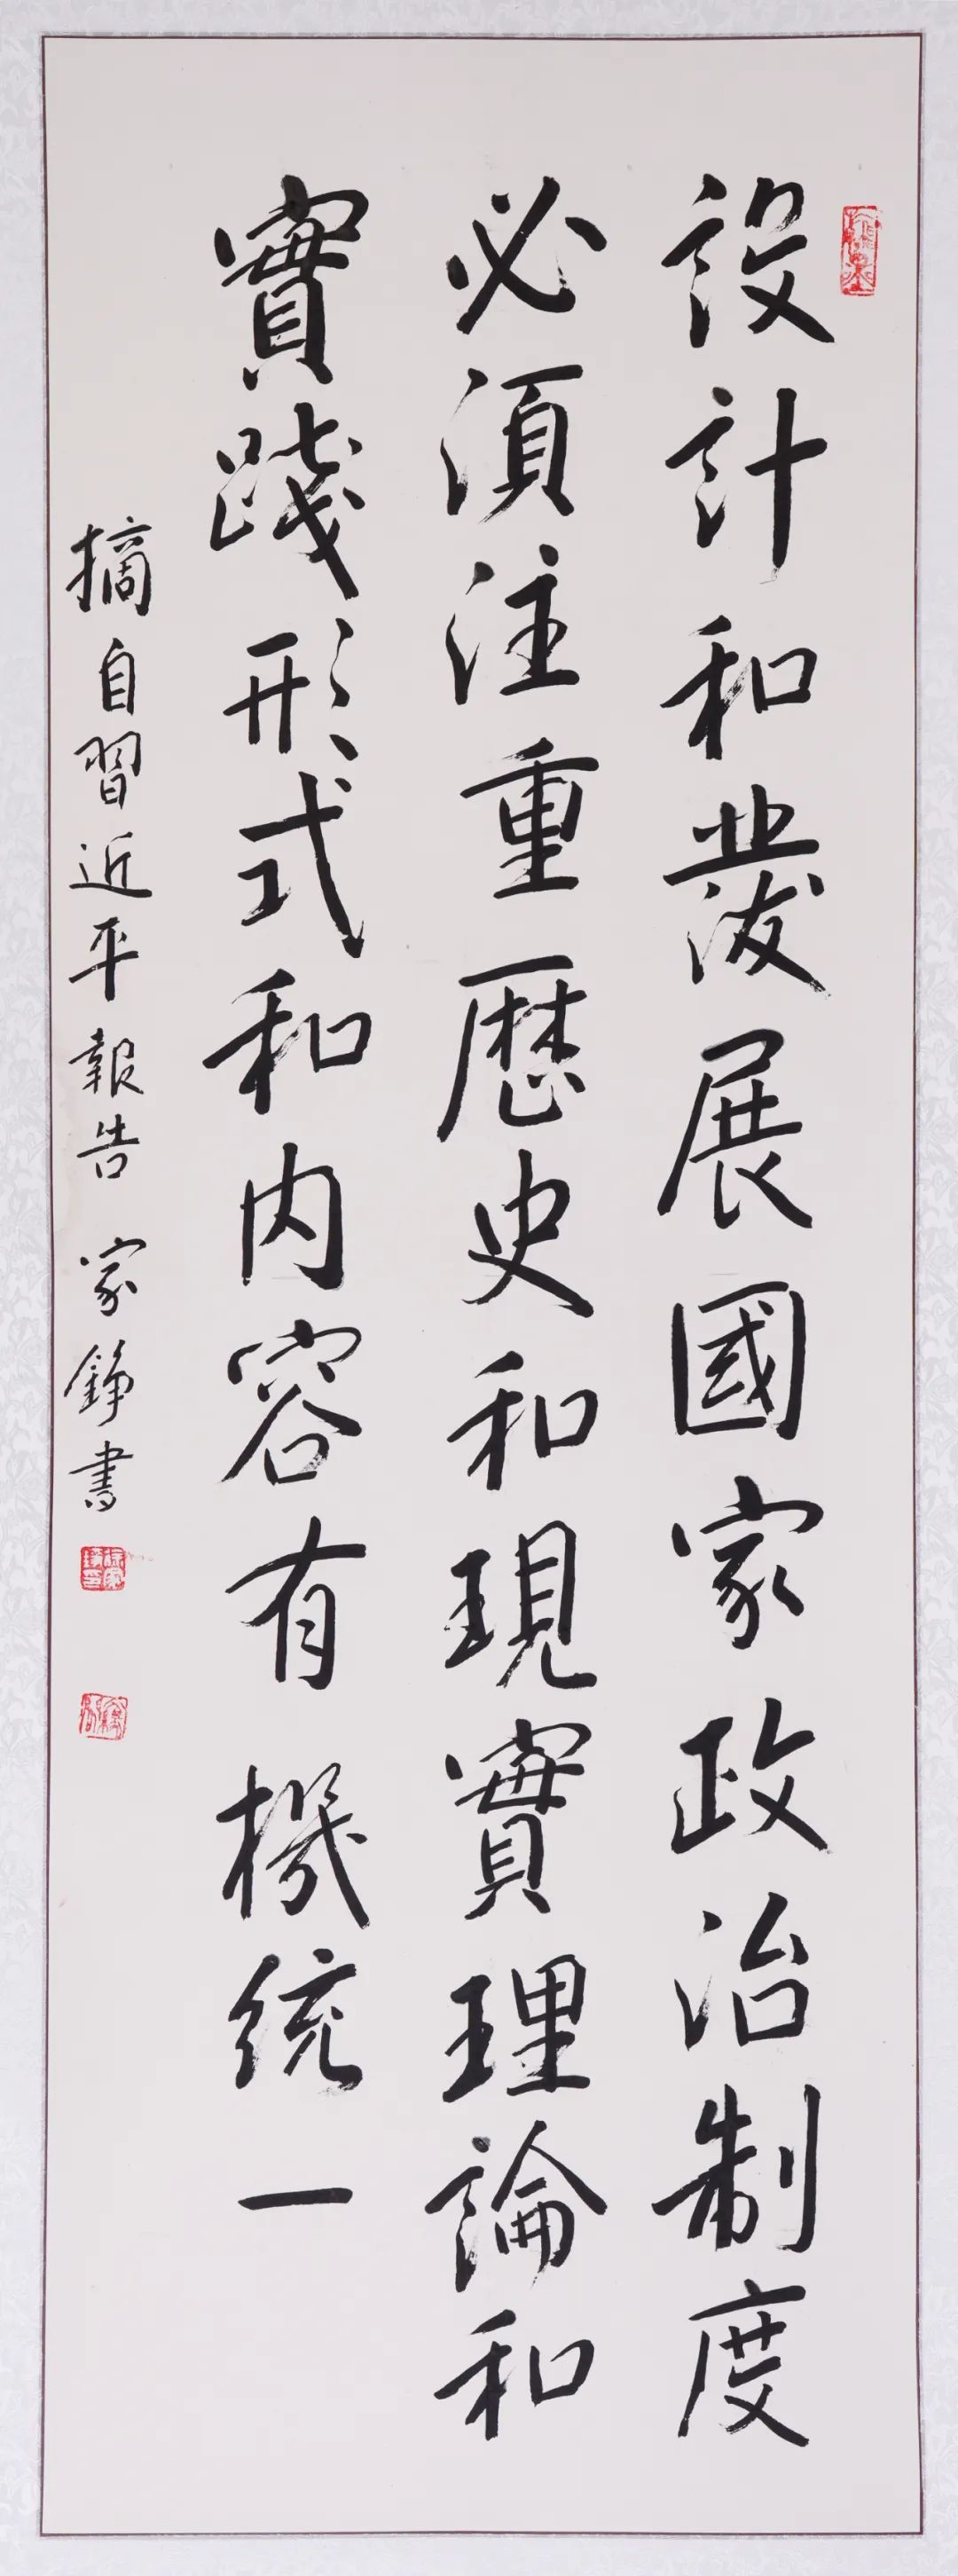 設計和發展國家政治制度
必須注重歷史和現實理論和
實踐形式和内容有機統一
摘自習近平報告 家錚書